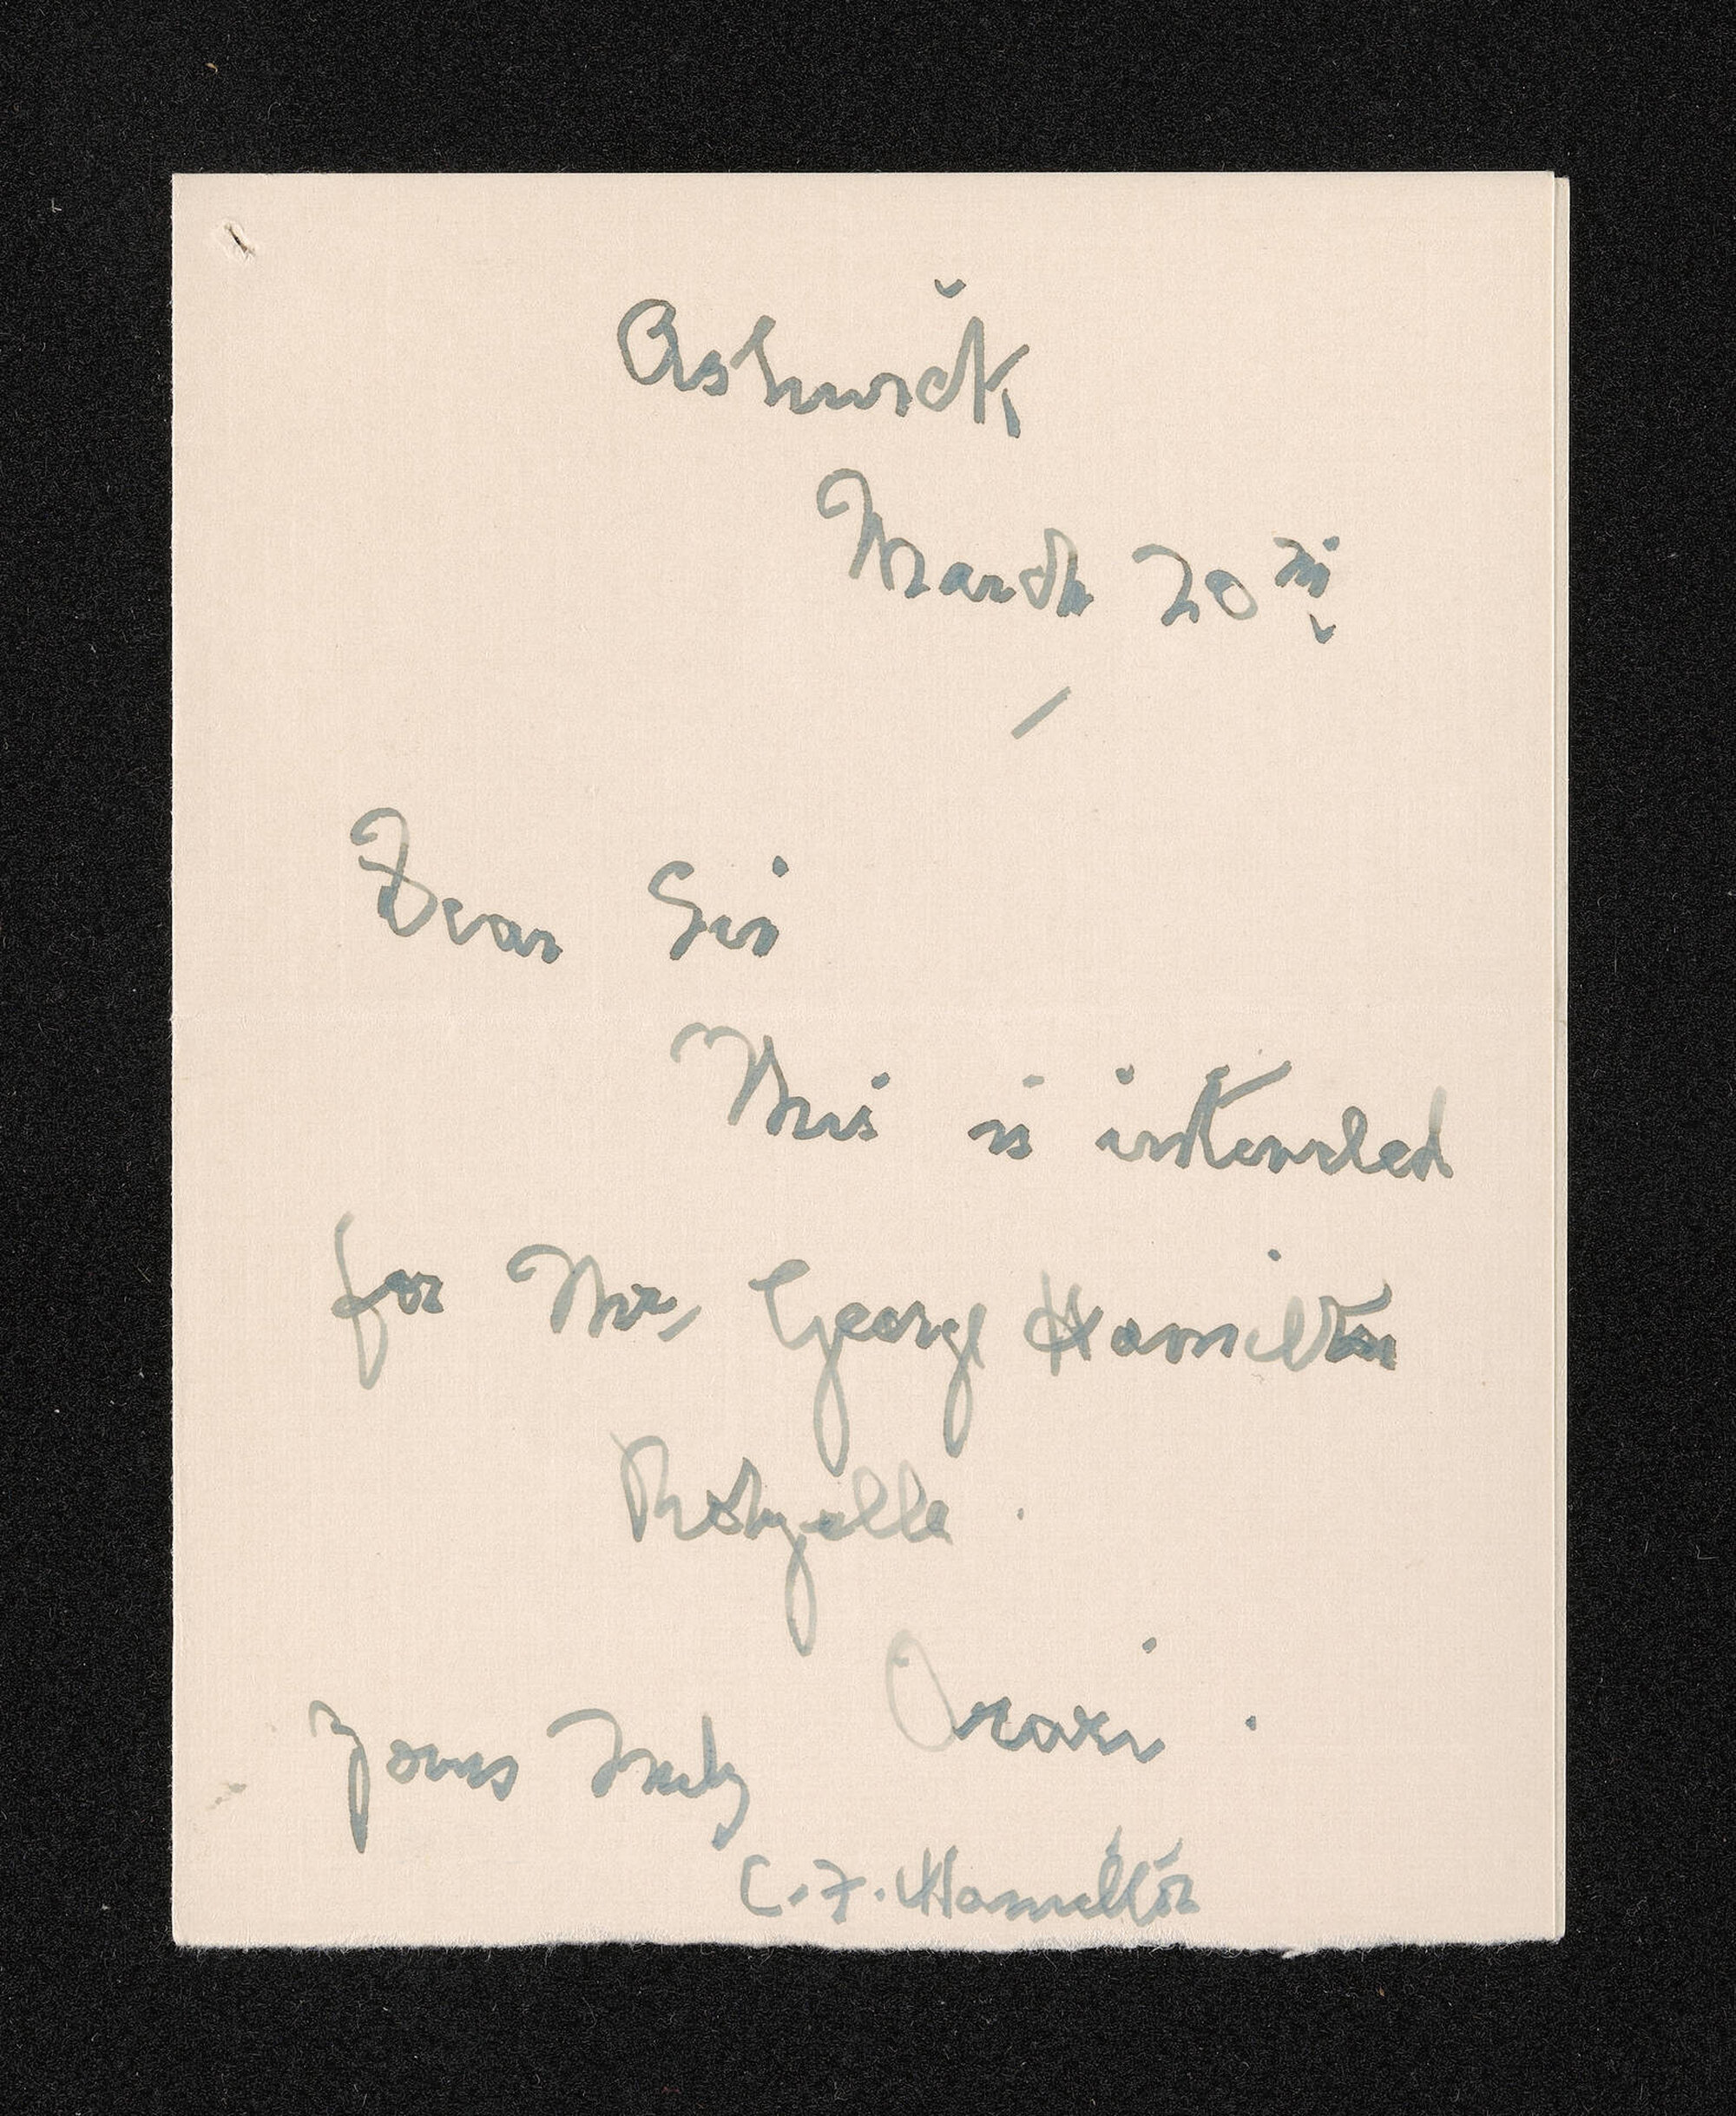 Ashwick
March 20th
Dear Sir
This is intended
for Mr, George Hamilton
Orari .
Yours Truly
C. F. Hamilton